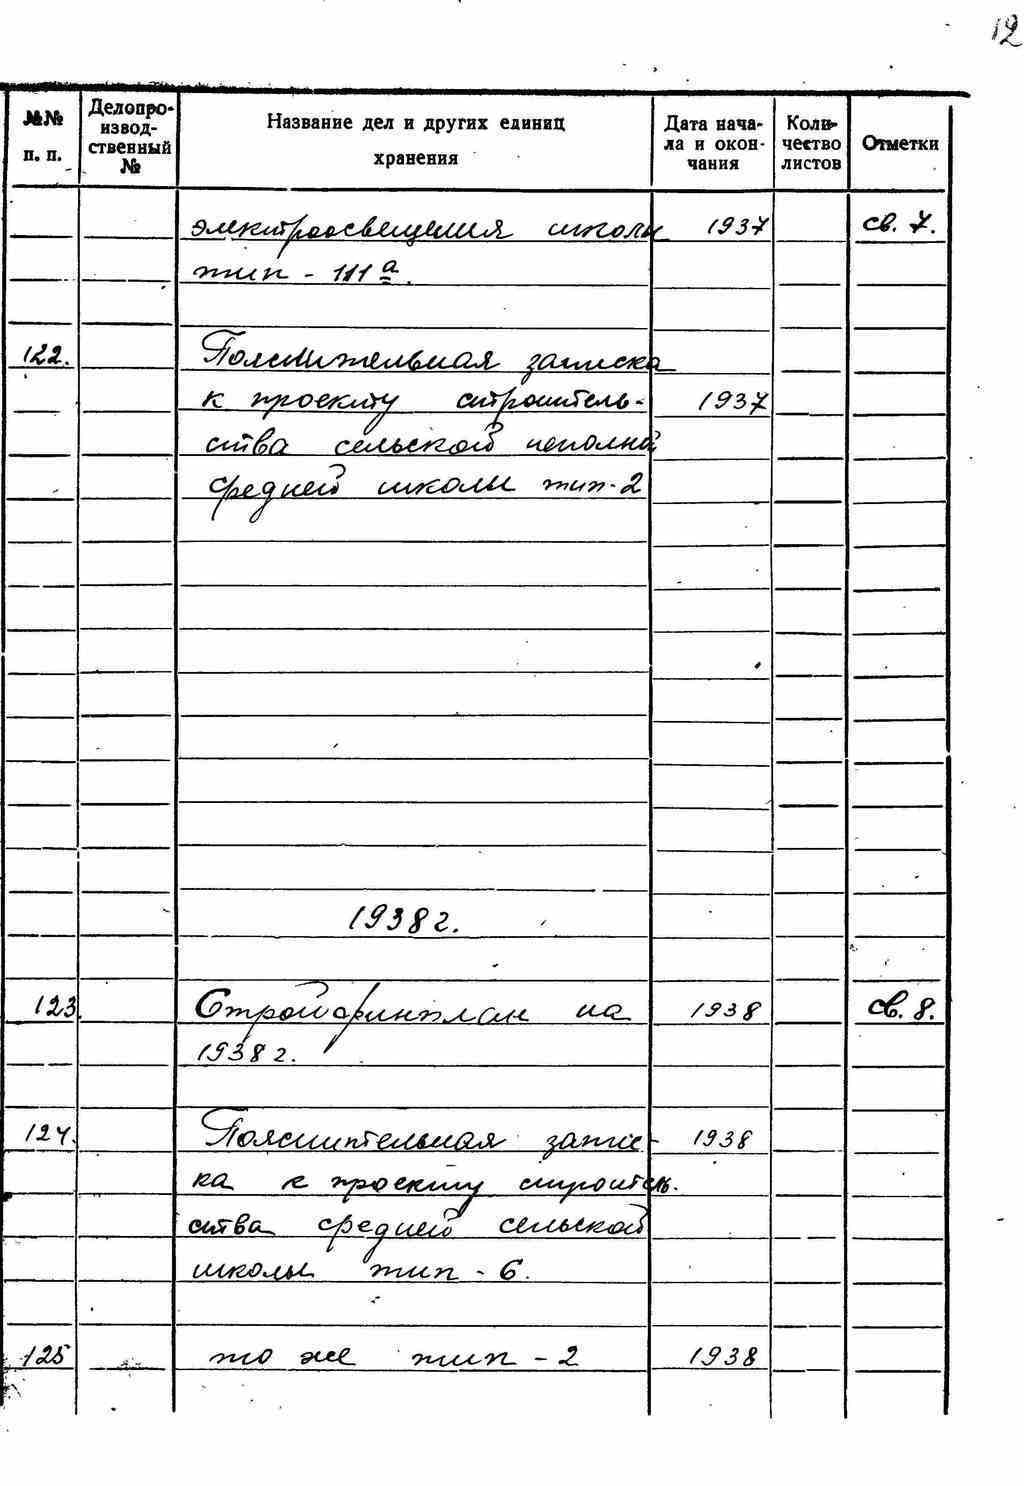 12
№№ п. п. Делопроизводственный № Название дел и других единиц хранения Дата начала и окончания Количество листов Отметки
электроосвещения школы 1937 св. 7.
тип - 111 а.
122. Пояснительная записка
к проекту строитель- 1937
ства сельской неполной
средней школы тип-2
1938 г.
123. Стройфинплан на 1938 св. 8.
1938 г.
124. Пояснительная запис- 1938
ка к проекту строитель-
ства средней сельской
школы тип - 6.
125 то же тип - 2 1938